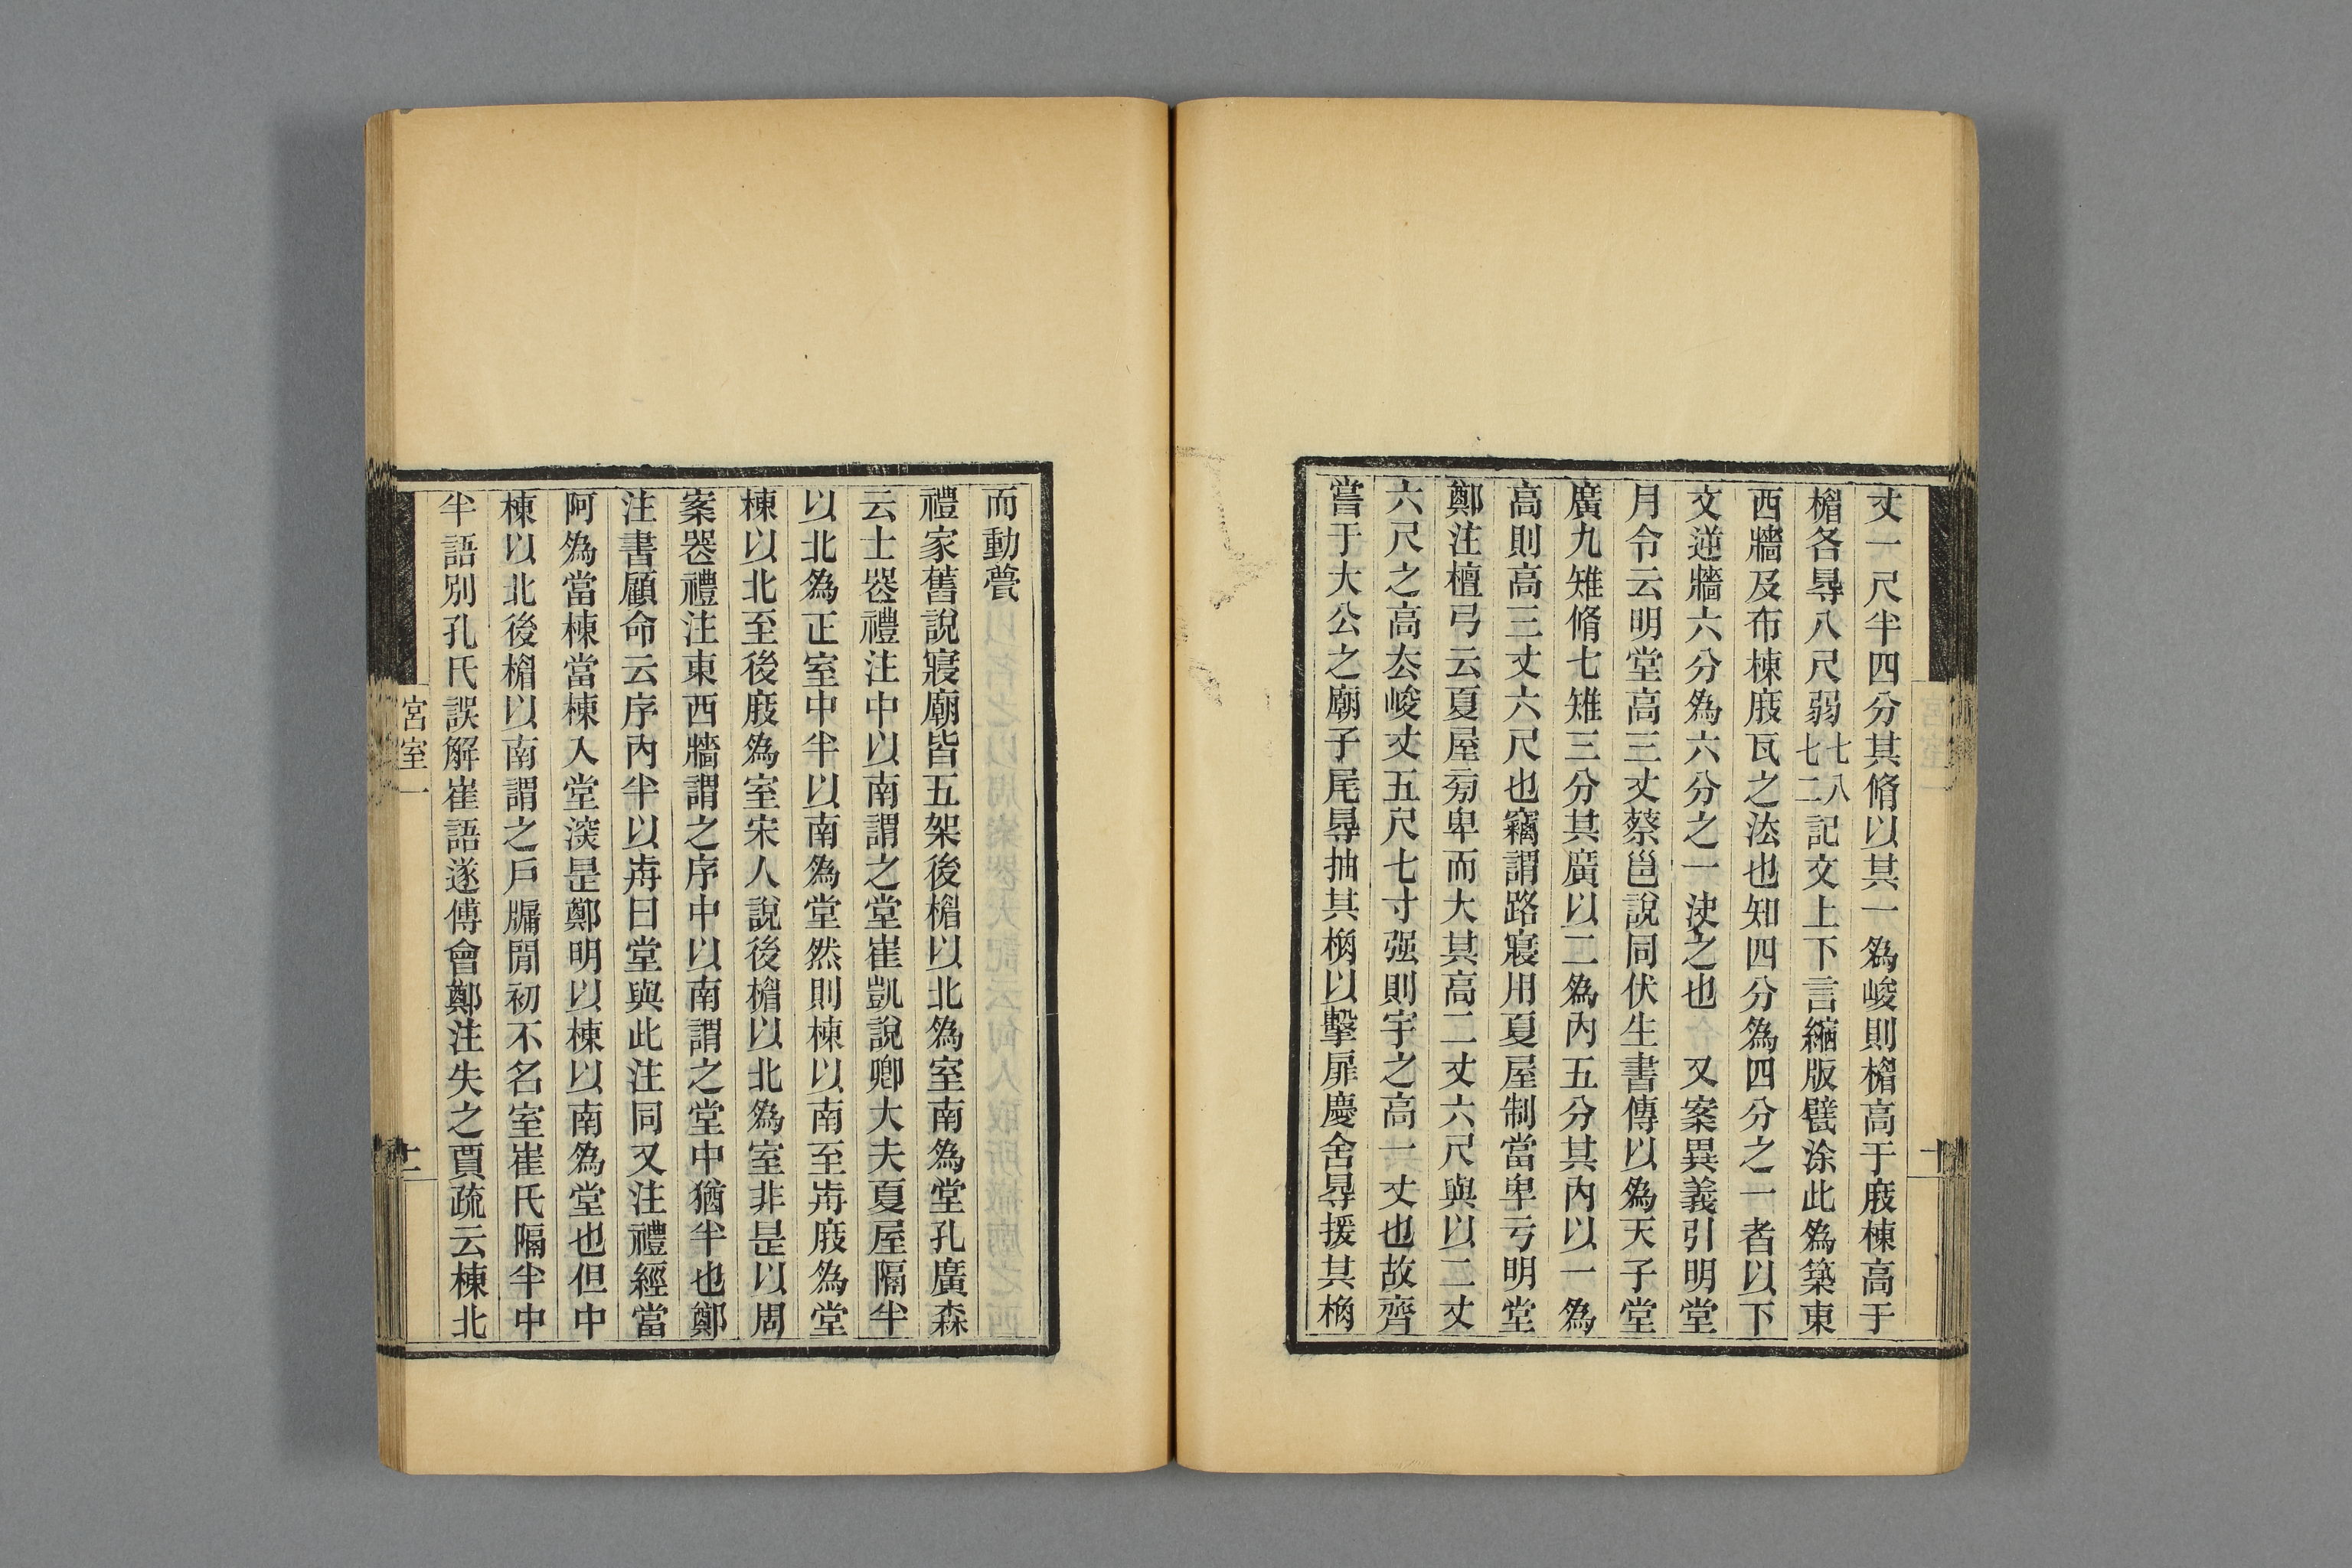 丈一尺半四分其脩以其一爲峻則楣高于庪棟高于
楣各㝷八尺弱七八七二記文上下言縮版甓涂此爲築東
西牆及布棟庪瓦之法也知四分爲四分之一者以下
文逆牆六分爲六分之一決之也 又案異義引明堂
月令云明堂高三丈蔡邕說同伏生書傳以爲天子堂
廣九雉脩七雉三分其廣以二爲內五分其內以一爲
高則高三丈六尺也竊謂路寢用夏屋制當卑亏明堂
鄭注檀弓云夏屋旁卑而大其高二丈六尺與以二丈
六尺之高厺峻丈五尺七寸强則宇之高一丈也故齊
嘗于大公之廟子尾㝷抽其桷以擊扉慶舍㝷援其桷
宮室一
十
而動甍
禮家舊說寢廟皆五架後楣以北爲室南爲堂孔廣森
云士喪禮注中以南謂之堂崔凱說卿大夫夏屋隔半
以北爲正室中半以南爲堂然則棟以南至歬庪爲堂
棟以北至後庪爲室宋人說後楣以北爲室非是以周
案喪禮注東西牆謂之序中以南謂之堂中猶半也鄭
注書顧命云序內半以歬曰堂與此注同又注禮經當
阿爲當棟當棟入堂深是鄭明以棟以南爲堂也但中
棟以北後楣以南謂之戶牖閒初不名室崔氏隔半中
半語別孔氏誤解崔語遂傅會鄭注失之賈疏云棟北
宮室一
十一